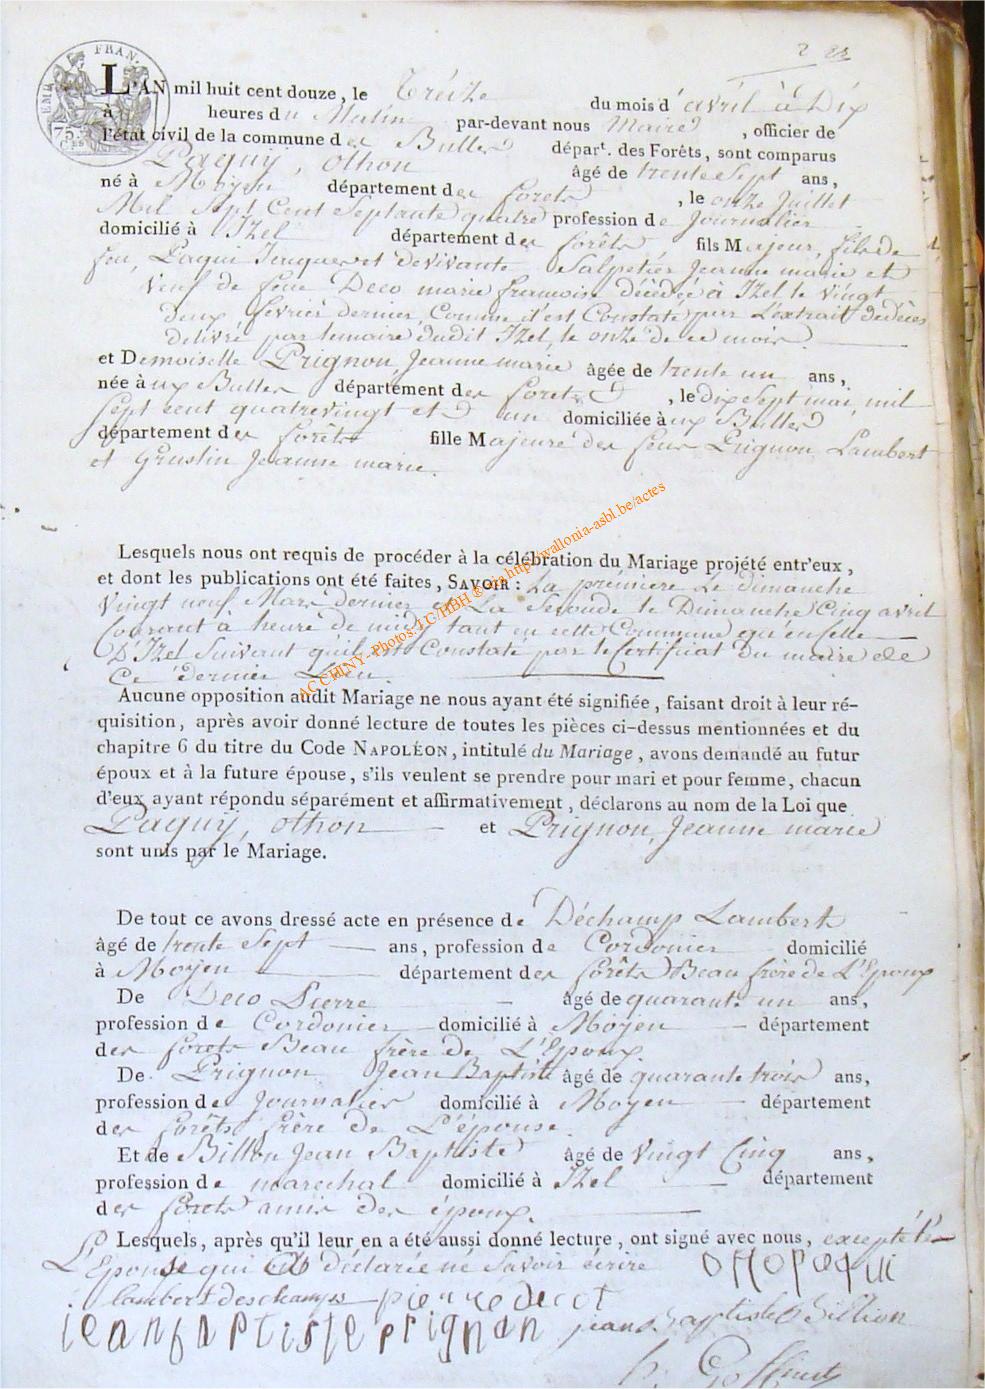 2 22
EMP. FRAN.
75
CES
L'AN mil huit cent douze, le Treize du mois d'avril à Dix
à heures du Matin par-devant nous Maire, officier de
l'état civil de la commune des Bulles départ. des Forêts, sont comparus
Paguy, othon âgé de trente Sept ans,
né à Moyen département des forets, le onze Juillet
Mil Sept Cent Septante quatre profession de Journalier
domicilié à Izel département des forêts fils Majeur, fils de
feu, Paqui Jacques et de vivante Salpetier Jeanne marie et
Veuf de feue Deco marie francoise décédée à Izel le vingt
deux fevrier dernier Comme c'est Constaté par L'extrait de dècès
délivré par le maire dudit Izel, le onze de ce mois
et Demoiselle Prignon, Jeanne marie âgée de trente un ans,
née à ux Bulles département des forets, le dix Sept mai, mil
Sept cent quatrevingt et un domiciliée à ux Bulles
département des forêts fille Majeure des feus Prignon Lambert
et Grustin Jeanne marie.
Lesquels nous ont requis de procéder à la célébration du Mariage projété entr'eux,
et dont les publications ont été faites, SAVOIR : La première Le dimanche
Vingt neuf Mars dernier et La Seconde le Dimanche Cinq avril
Courant a heure de midy tant en cette Commune qu'en celle
D'Izel Suivant qu'il est Constaté par le Certificat du maire de
Ce dernier Lieu.
AC CHINY - Photos JC/HBH © via http://wallonia-asbl.be/actes
Aucune opposition audit Mariage ne nous ayant été signifiée, faisant droit à leur ré-
quisition, après avoir donné lecture de toutes les pièces ci-dessus mentionnées et du
chapitre 6 du titre du Code NAPOLÉON, intitulé du Mariage, avons demandé au futur
époux et à la future épouse, s'ils veulent se prendre pour mari et pour femme, chacun
d'eux ayant répondu séparément et affirmativement, déclarons au nom de la Loi que
Paguy, othon et Prignon, Jeanne marie
sont unis par le Mariage.
De tout ce avons dressé acte en présence de Déchamp Lambert
âgé de trente Sept ans, profession de Cordonier domicilié
à Moyen département des forêts Beau frère de L'Epoux
De Deco Pierre âgé de quarante un ans,
profession de Cordonier domicilié à Moyen département
des forets Beau frère de L'Epoux
De Prignon Jean Baptiste âgé de quarante trois ans,
profession de Journalier domicilié à Moyen département
des forêts frère de L'épouse.
Et de Billon Jean Baptiste âgé de vingt Cinq ans,
profession de marechal domicilié à Izel département
des forets amis des époux.
Lesquels, après qu'il leur en a été aussi donné lecture, ont signé avec nous, excepté
L'Epouse qui a déclarée né Savoir écrire othopaqui
lambert deschamps pierre decot
jean baptiste prignon jean Baptiste Billion